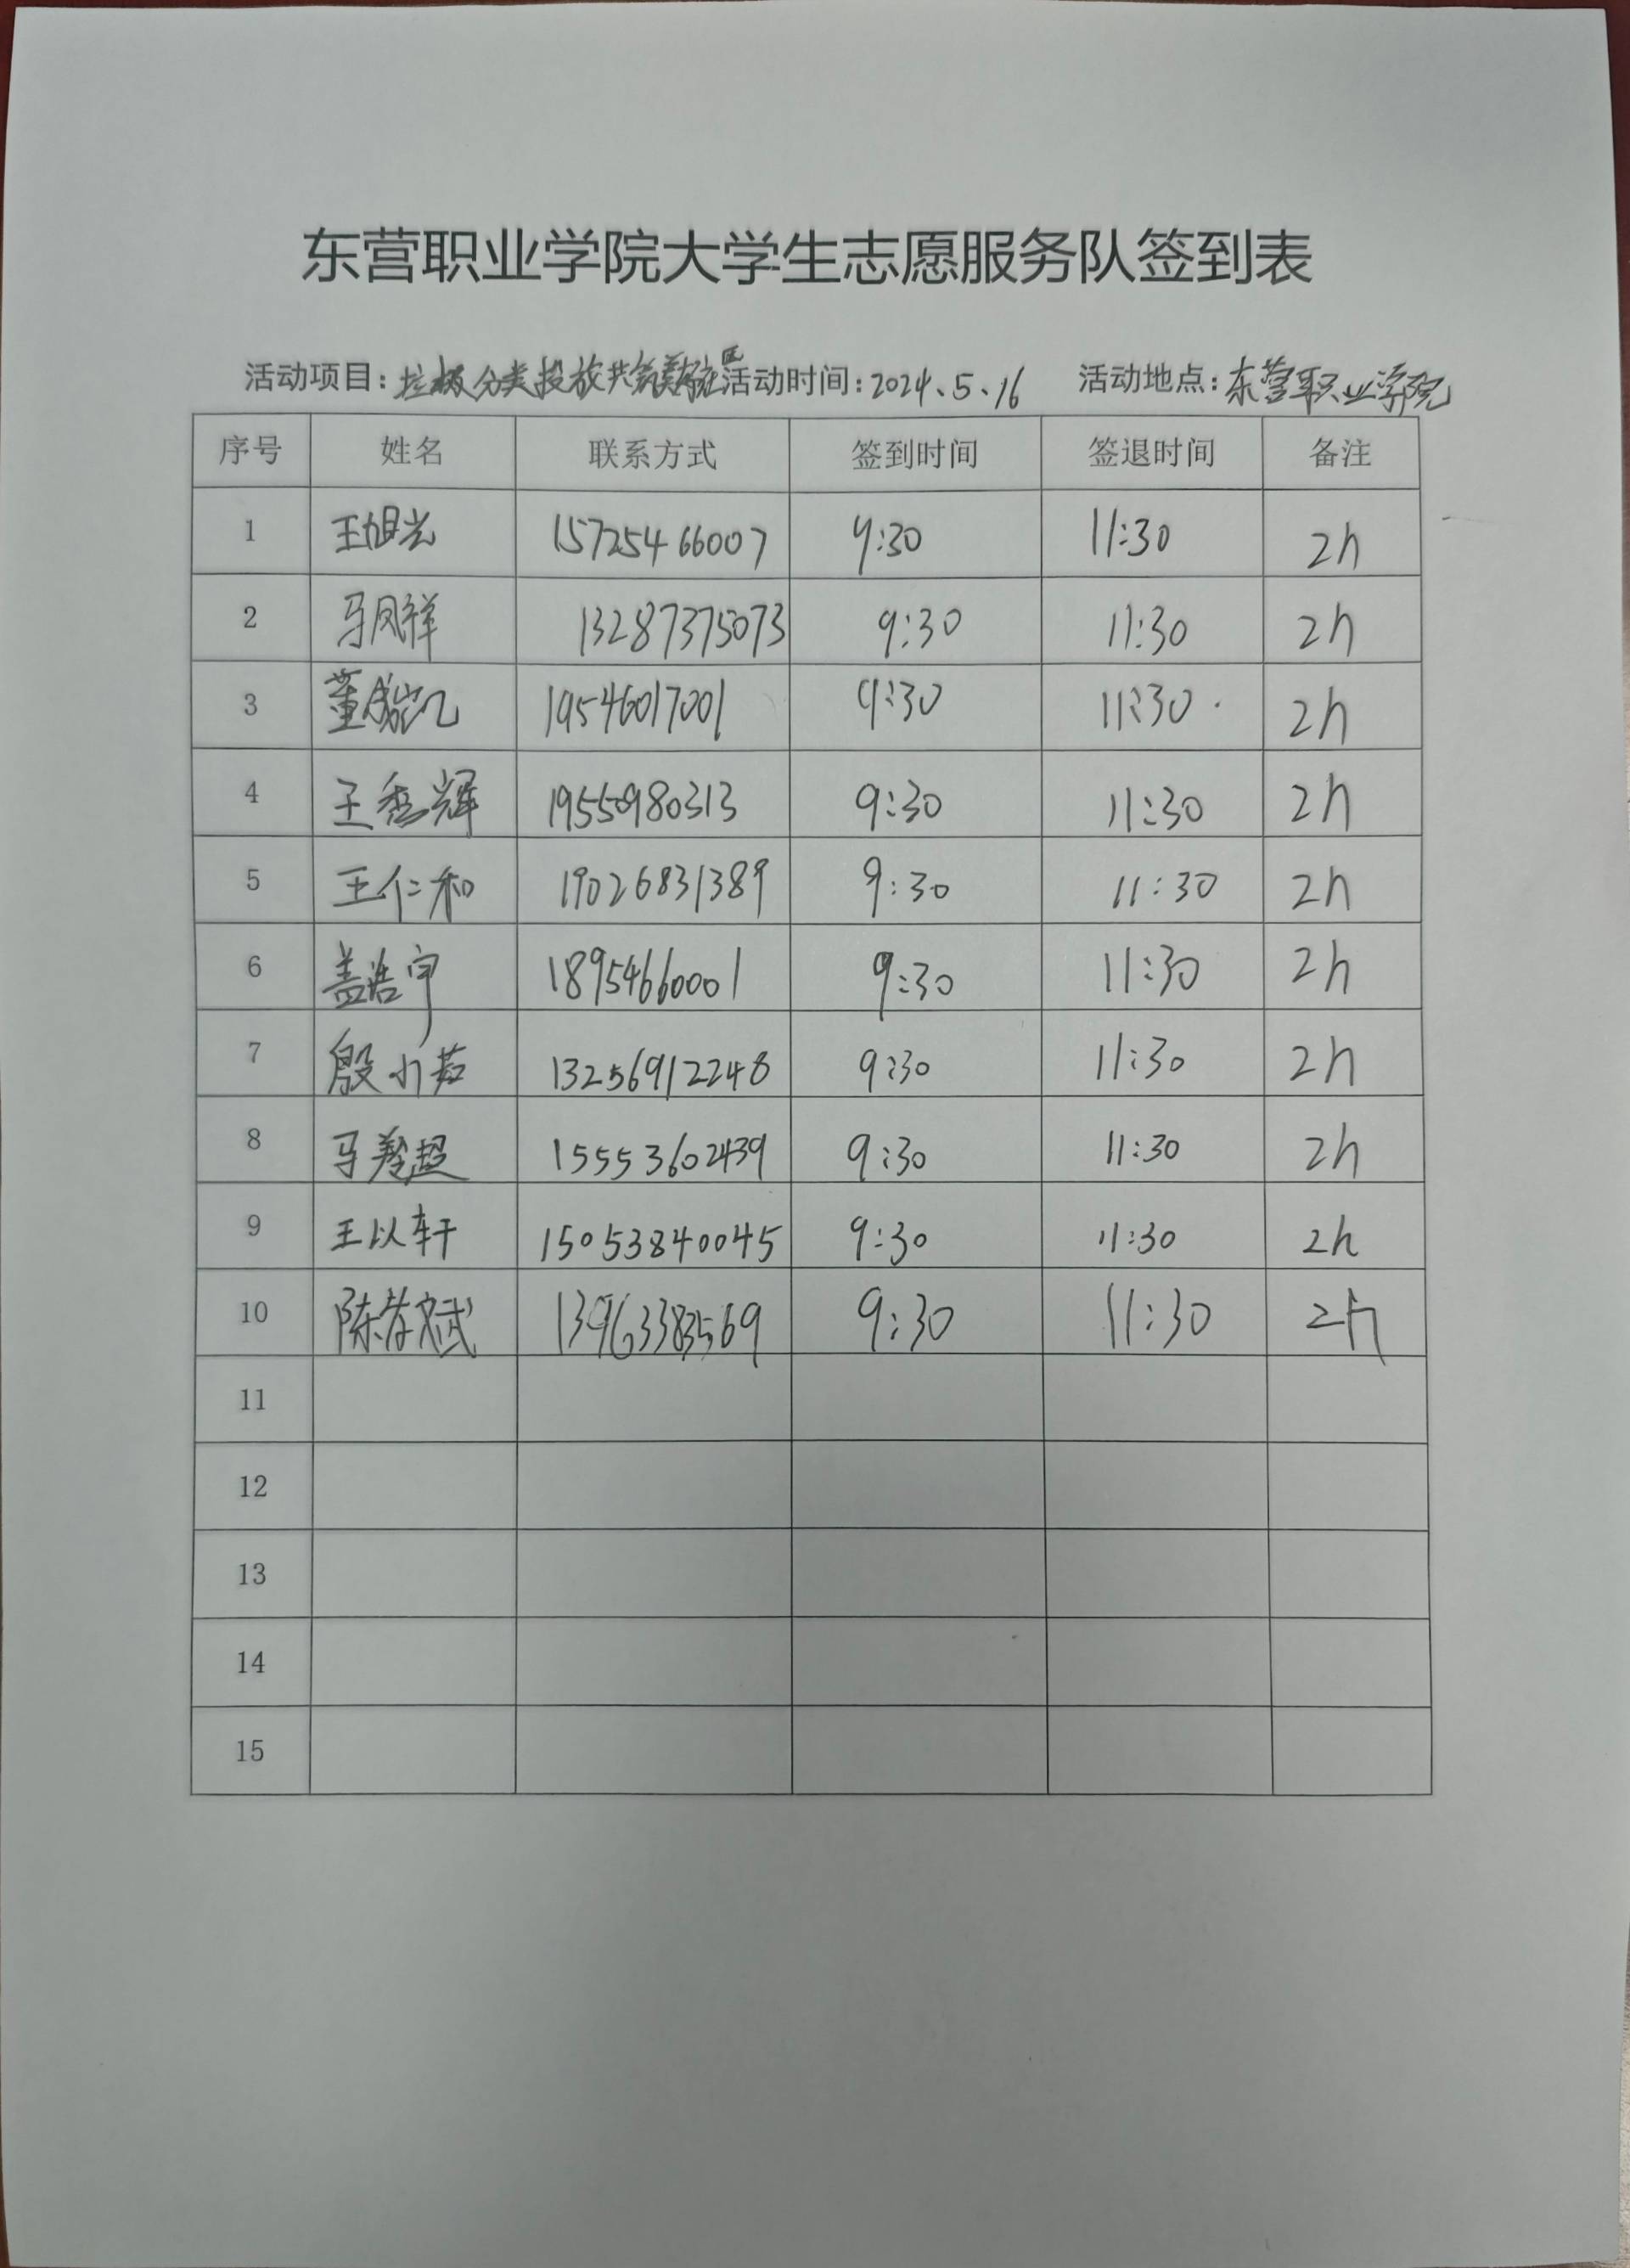 东营职业学院大学生志愿服务队签到表
活动项目：垃圾分类投放共筑美好家园 活动时间：2024.5.16 活动地点：东营职业学院
序号 姓名 联系方式 签到时间 签退时间 备注
1 王旭光 15725466007 9:30 11:30 2h
2 马凤祥 13287375073 9:30 11:30 2h
3 董成凯 19546017001 9:30 11:30 2h
4 王秀辉 1955980313 9:30 11:30 2h
5 王仁和 19026831389 9:30 11:30 2h
6 盖浩宇 18954660001 9:30 11:30 2h
7 殷小茹 13256912248 9:30 11:30 2h
8 马超 15553602439 9:30 11:30 2h
9 王以轩 15053840045 9:30 11:30 2h
10 陈斌 13963383569 9:30 11:30 2h
11
12
13
14
15